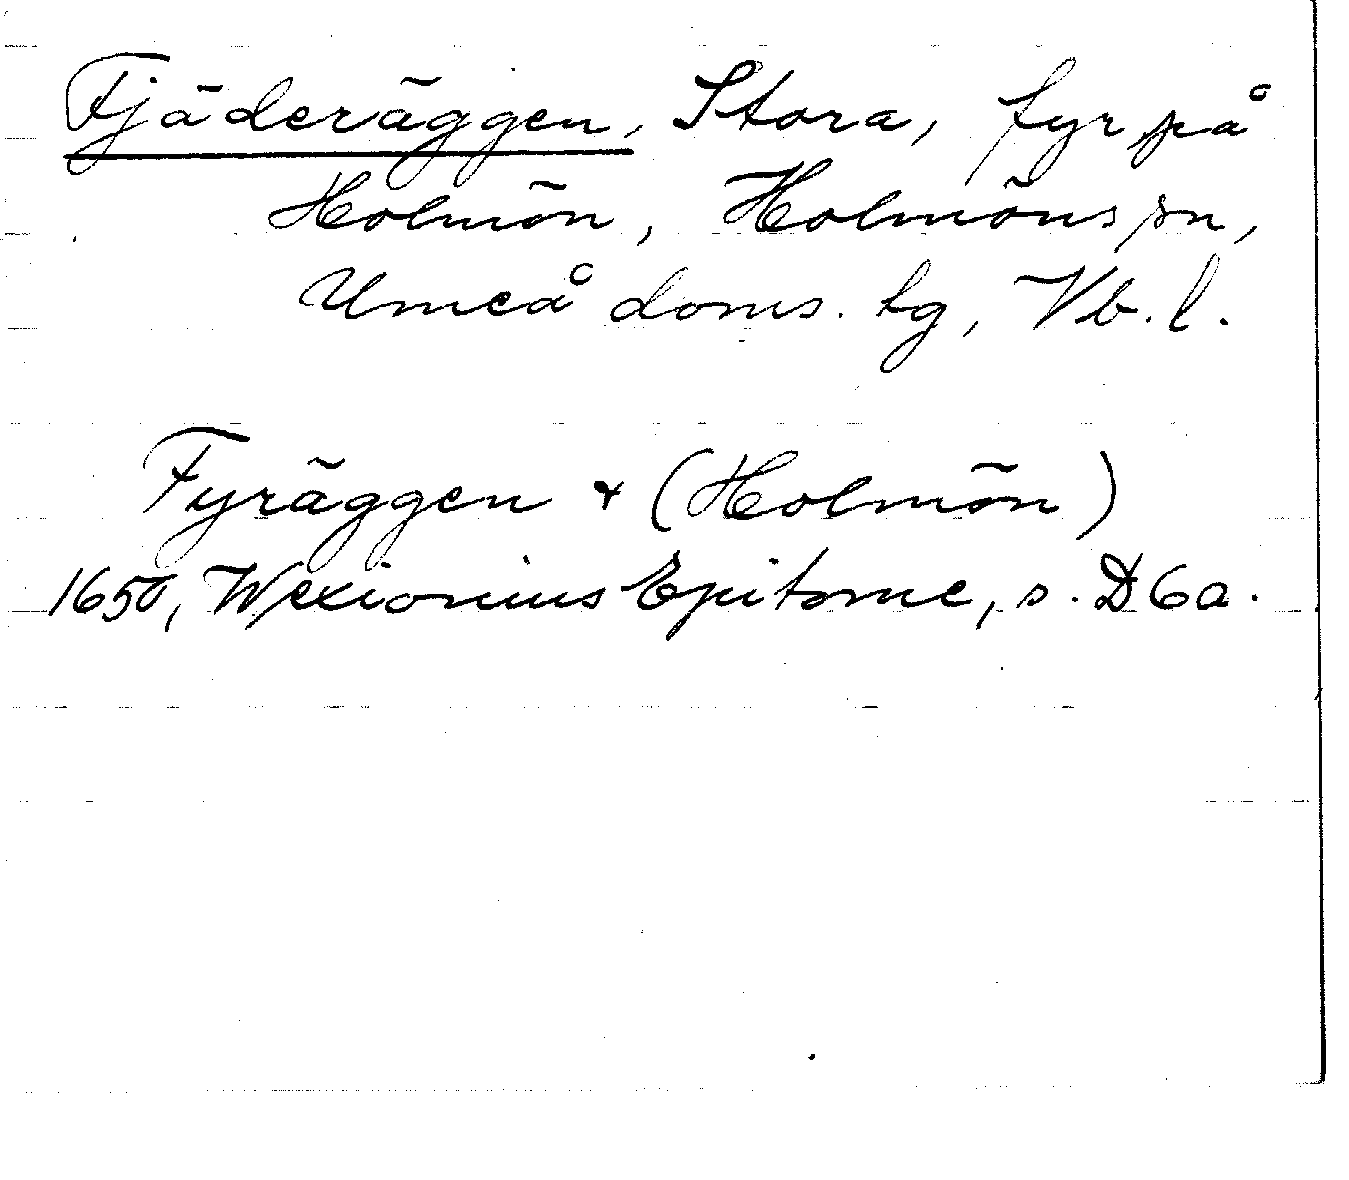 Fjäderäggen, Stora, fyr på
Holmön, Holmöns sn,
Umeå doms. tg, Vb. l.
Fyräggen + (Holmön)
1650, Wexionius Epitome, s. D6a.